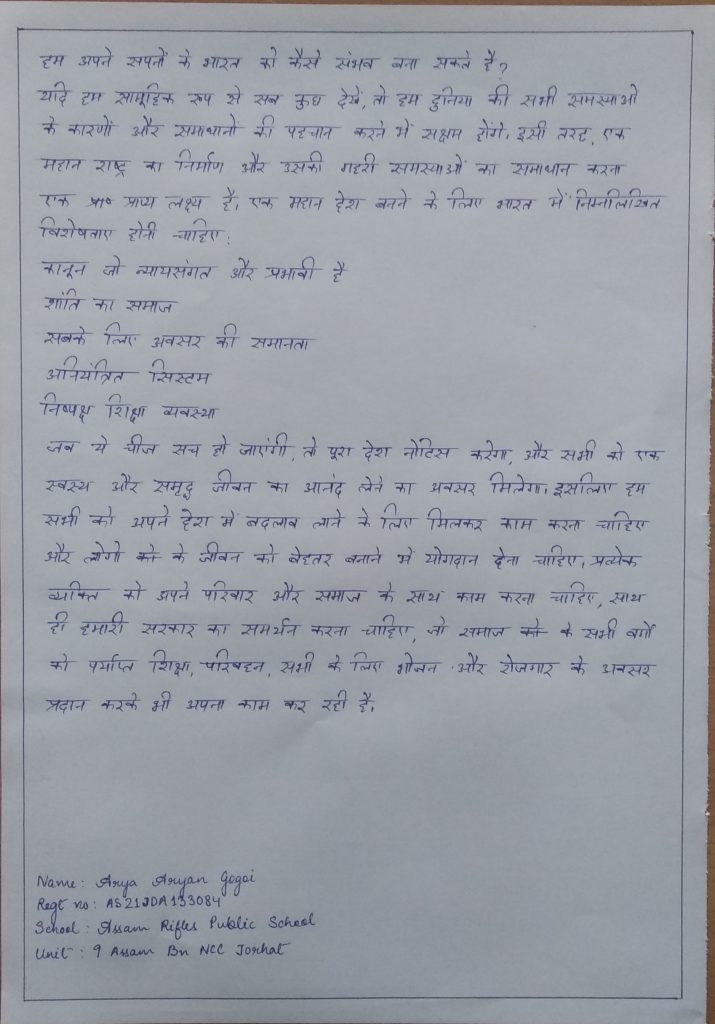 हम अपने सपनों के भारत को कैसे संभव बना सकते है?
यदि हम सामूहिक रूप से सब कुछ देखें, तो हम दुनिया की सभी समस्याओ
के कारणों और समाधानों की पहचान करने में सक्षम होंगे। इसी तरह, एक
महान राष्ट्र का निर्माण और उसकी गहरी समस्याओं का समाधान करना
एक प्राप्य लक्ष्य है। एक महान देश बनने के लिए भारत में निम्नलिखित
विशेषताए होनी चाहिए:
कानून जो न्यायसंगत और प्रभावी है
शांति का समाज
सबके लिए अवसर की समानता
अनियंत्रित सिस्टम
निष्पक्ष शिक्षा व्यवस्था
जब ये चीज सच हो जाएंगी, तो पुरा देश नोटिस करेगा, और सभी को एक
स्वस्थ और समृद्ध जीवन का आनंद लेने का अवसर मिलेगा। इसलिए हम
सभी को अपने देश में बदलाव लाने के लिए मिलकर काम करना चाहिए
और लोगो के जीवन को बेहतर बनाने में योगदान देना चाहिए। प्रत्येक
व्यक्ति को अपने परिवार और समाज के साथ काम करना चाहिए, साथ
ही हमारी सरकार का समर्थन करना चाहिए, जो समाज के सभी वर्गों
को पर्याप्त शिक्षा, परिवहन, सभी के लिए भोजन और रोजगार के अवसर
प्रदान करके भी अपना काम कर रही है।
Name: Arya Aryan Gogoi
Regt no: AS21JDA133084
School: Assam Rifles Public School
Unit: 9 Assam Bn NCC Jorhat